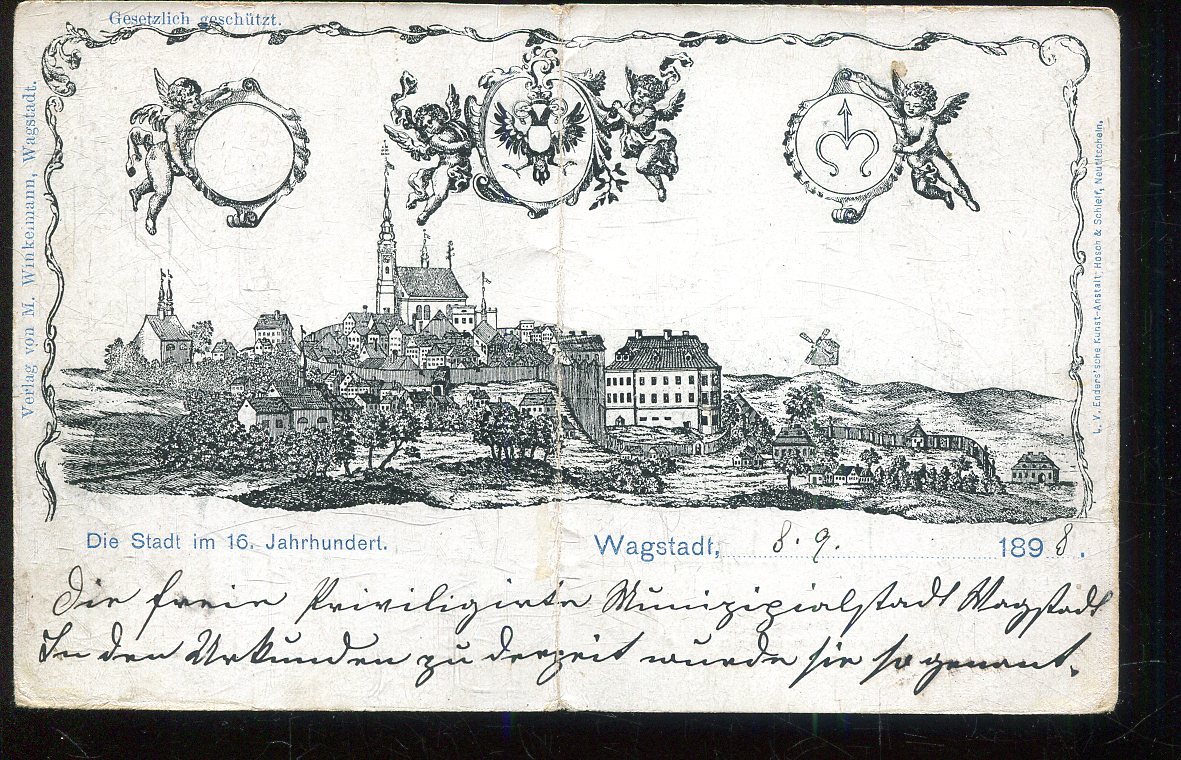 Gesetzlich geschützt.
Verlag von M. Winkelmann, Wagstadt.
L. V. Enders'sche Kunst-Anstalt, Hosch & Schleif, Neutitschein.
Die Stadt im 16. Jahrhundert.
Wagstadt, 8. 9. 1898.
Die freie Priviligirte Munizipialstadt Wagstadt
In den Urkunden zu derzeit wurde sie so genant.